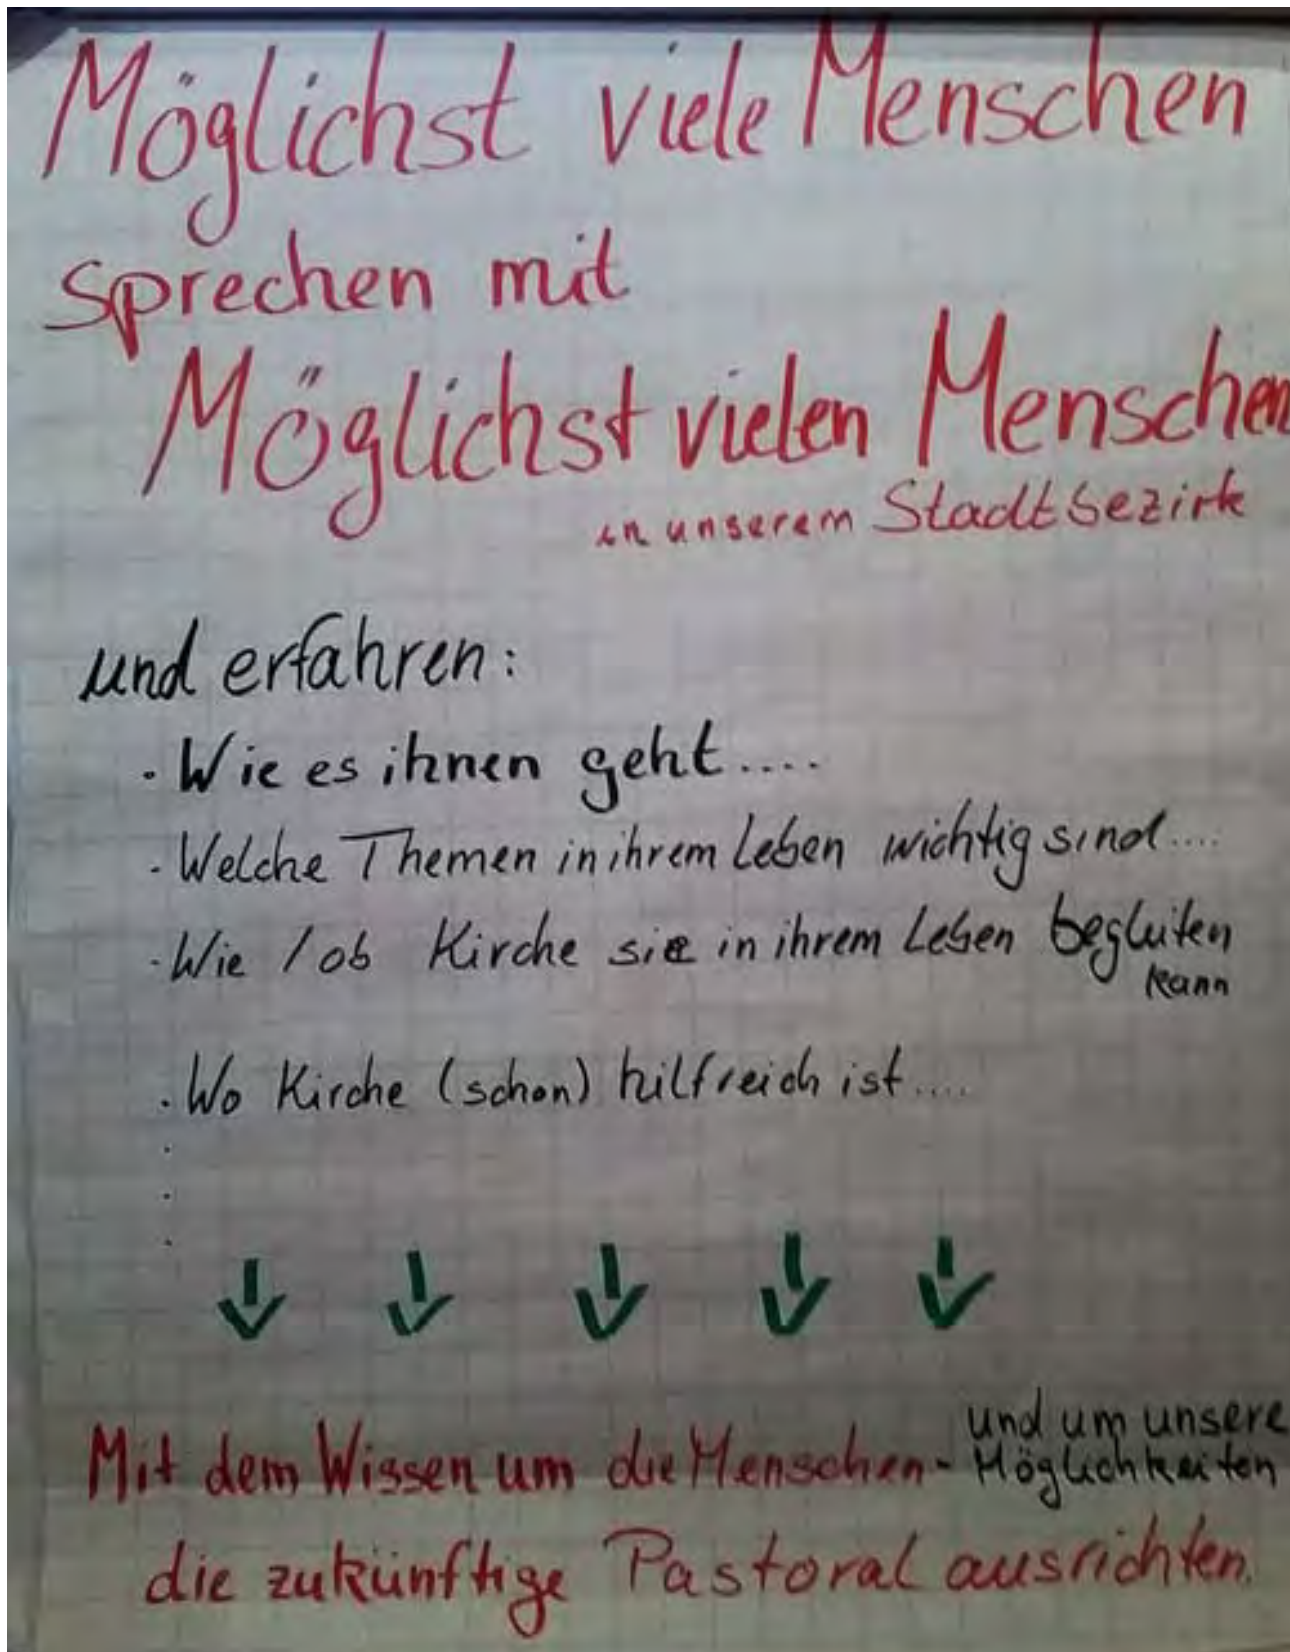 Möglichst viele Menschen
sprechen mit
Möglichst vielen Menschen
in unserem Stadtbezirk
und erfahren:
· Wie es ihnen geht....
· Welche Themen in ihrem Leben wichtig sind....
· Wie / ob Kirche sie in ihrem Leben begleiten
kann
· Wo Kirche (schon) hilfreich ist....
·
·
·
Mit dem Wissen um die Menschen - und um unsere
Möglichkeiten
die zukünftige Pastoral ausrichten.